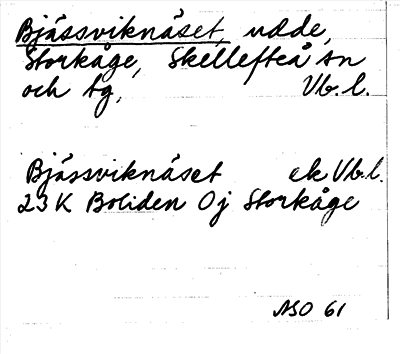 Bjässviknäset, udde,
Storkåge, Skellefteå sn
och tg, Vb. l.
Bjässviknäset ek Vb. l.
23 K Boliden 0j Storkåge
ASO 61